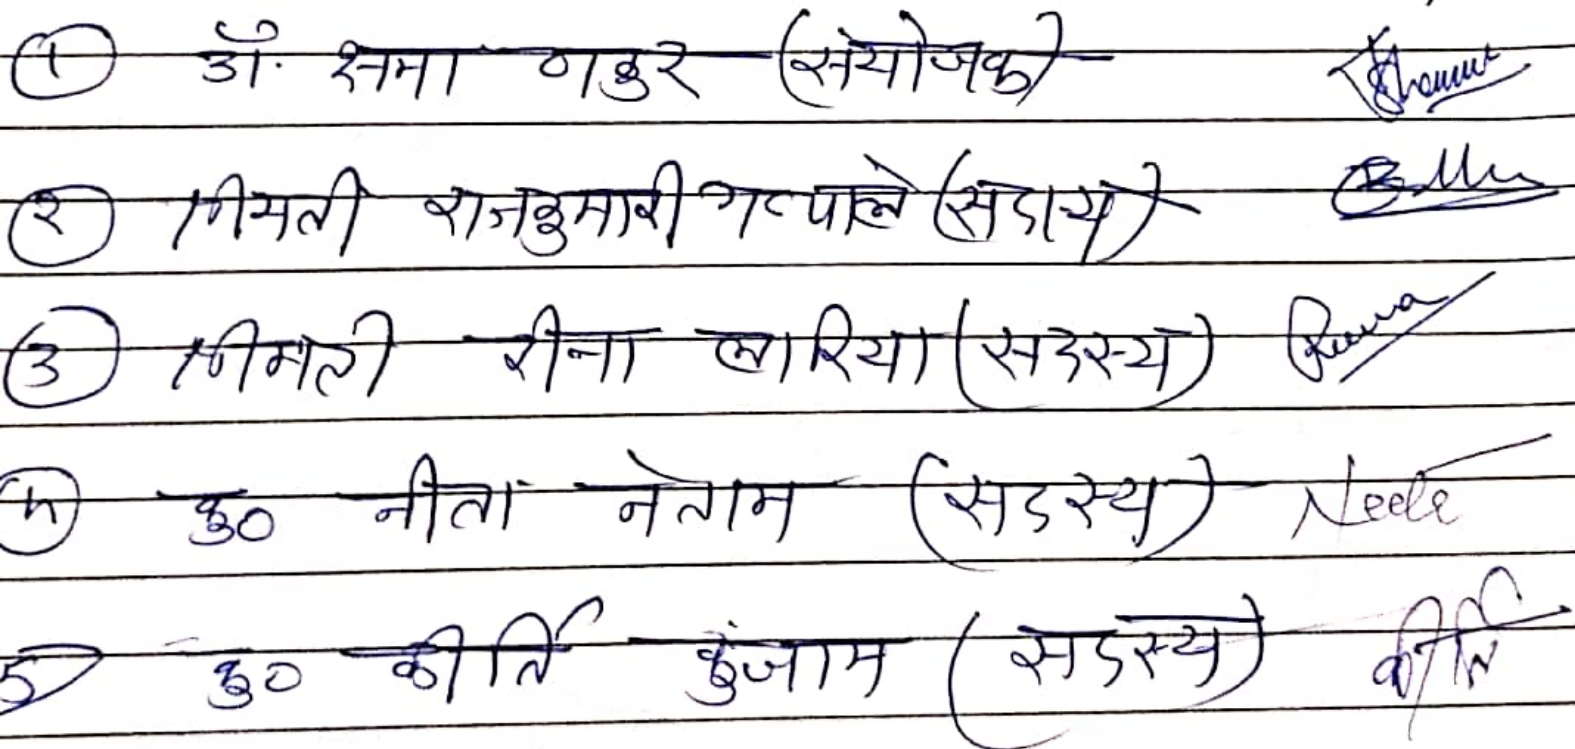 ① डॉ. क्षमा ठाकुर (संयोजक)
② श्रीमती राजकुमारी (सदस्य)
③ श्रीमती रीना लारिया (सदस्य) Reena
④ कु० नीता नेताम (सदस्य) Neeta
5 कु० कीर्ति कुंजाम (सदस्य) कीर्ति